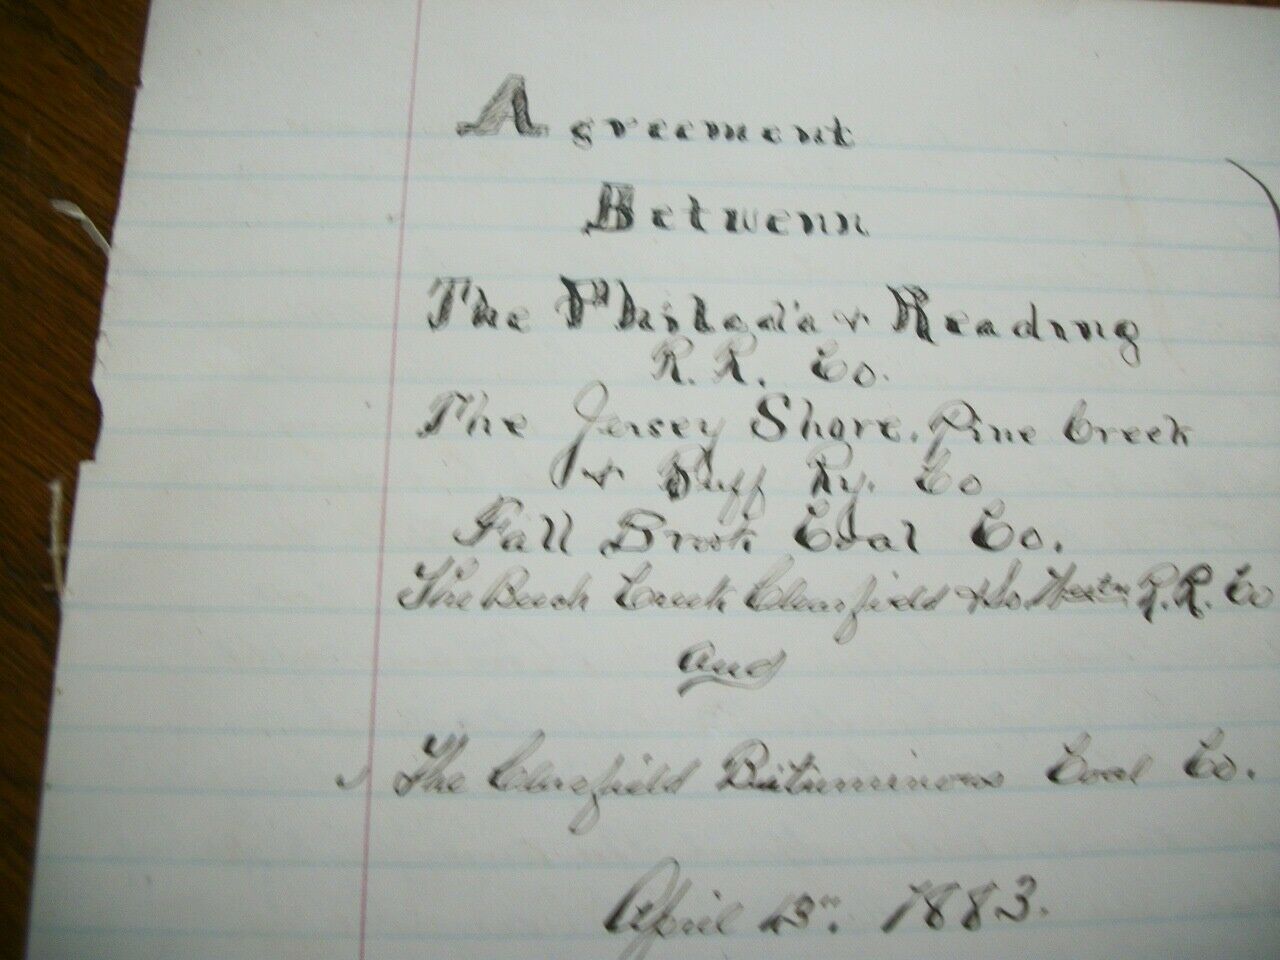 Agreement
Betwenn
The Philad'a & Reading
R. R. Co.
The Jersey Shore, Pine Creek
& Buff Ry. Co
Fall Brook Coal Co.
The Beech Creek Clearfield & So. Westn R. R. Co
and
The Clearfield Bituminous Coal Co.
April 13th. 1883.